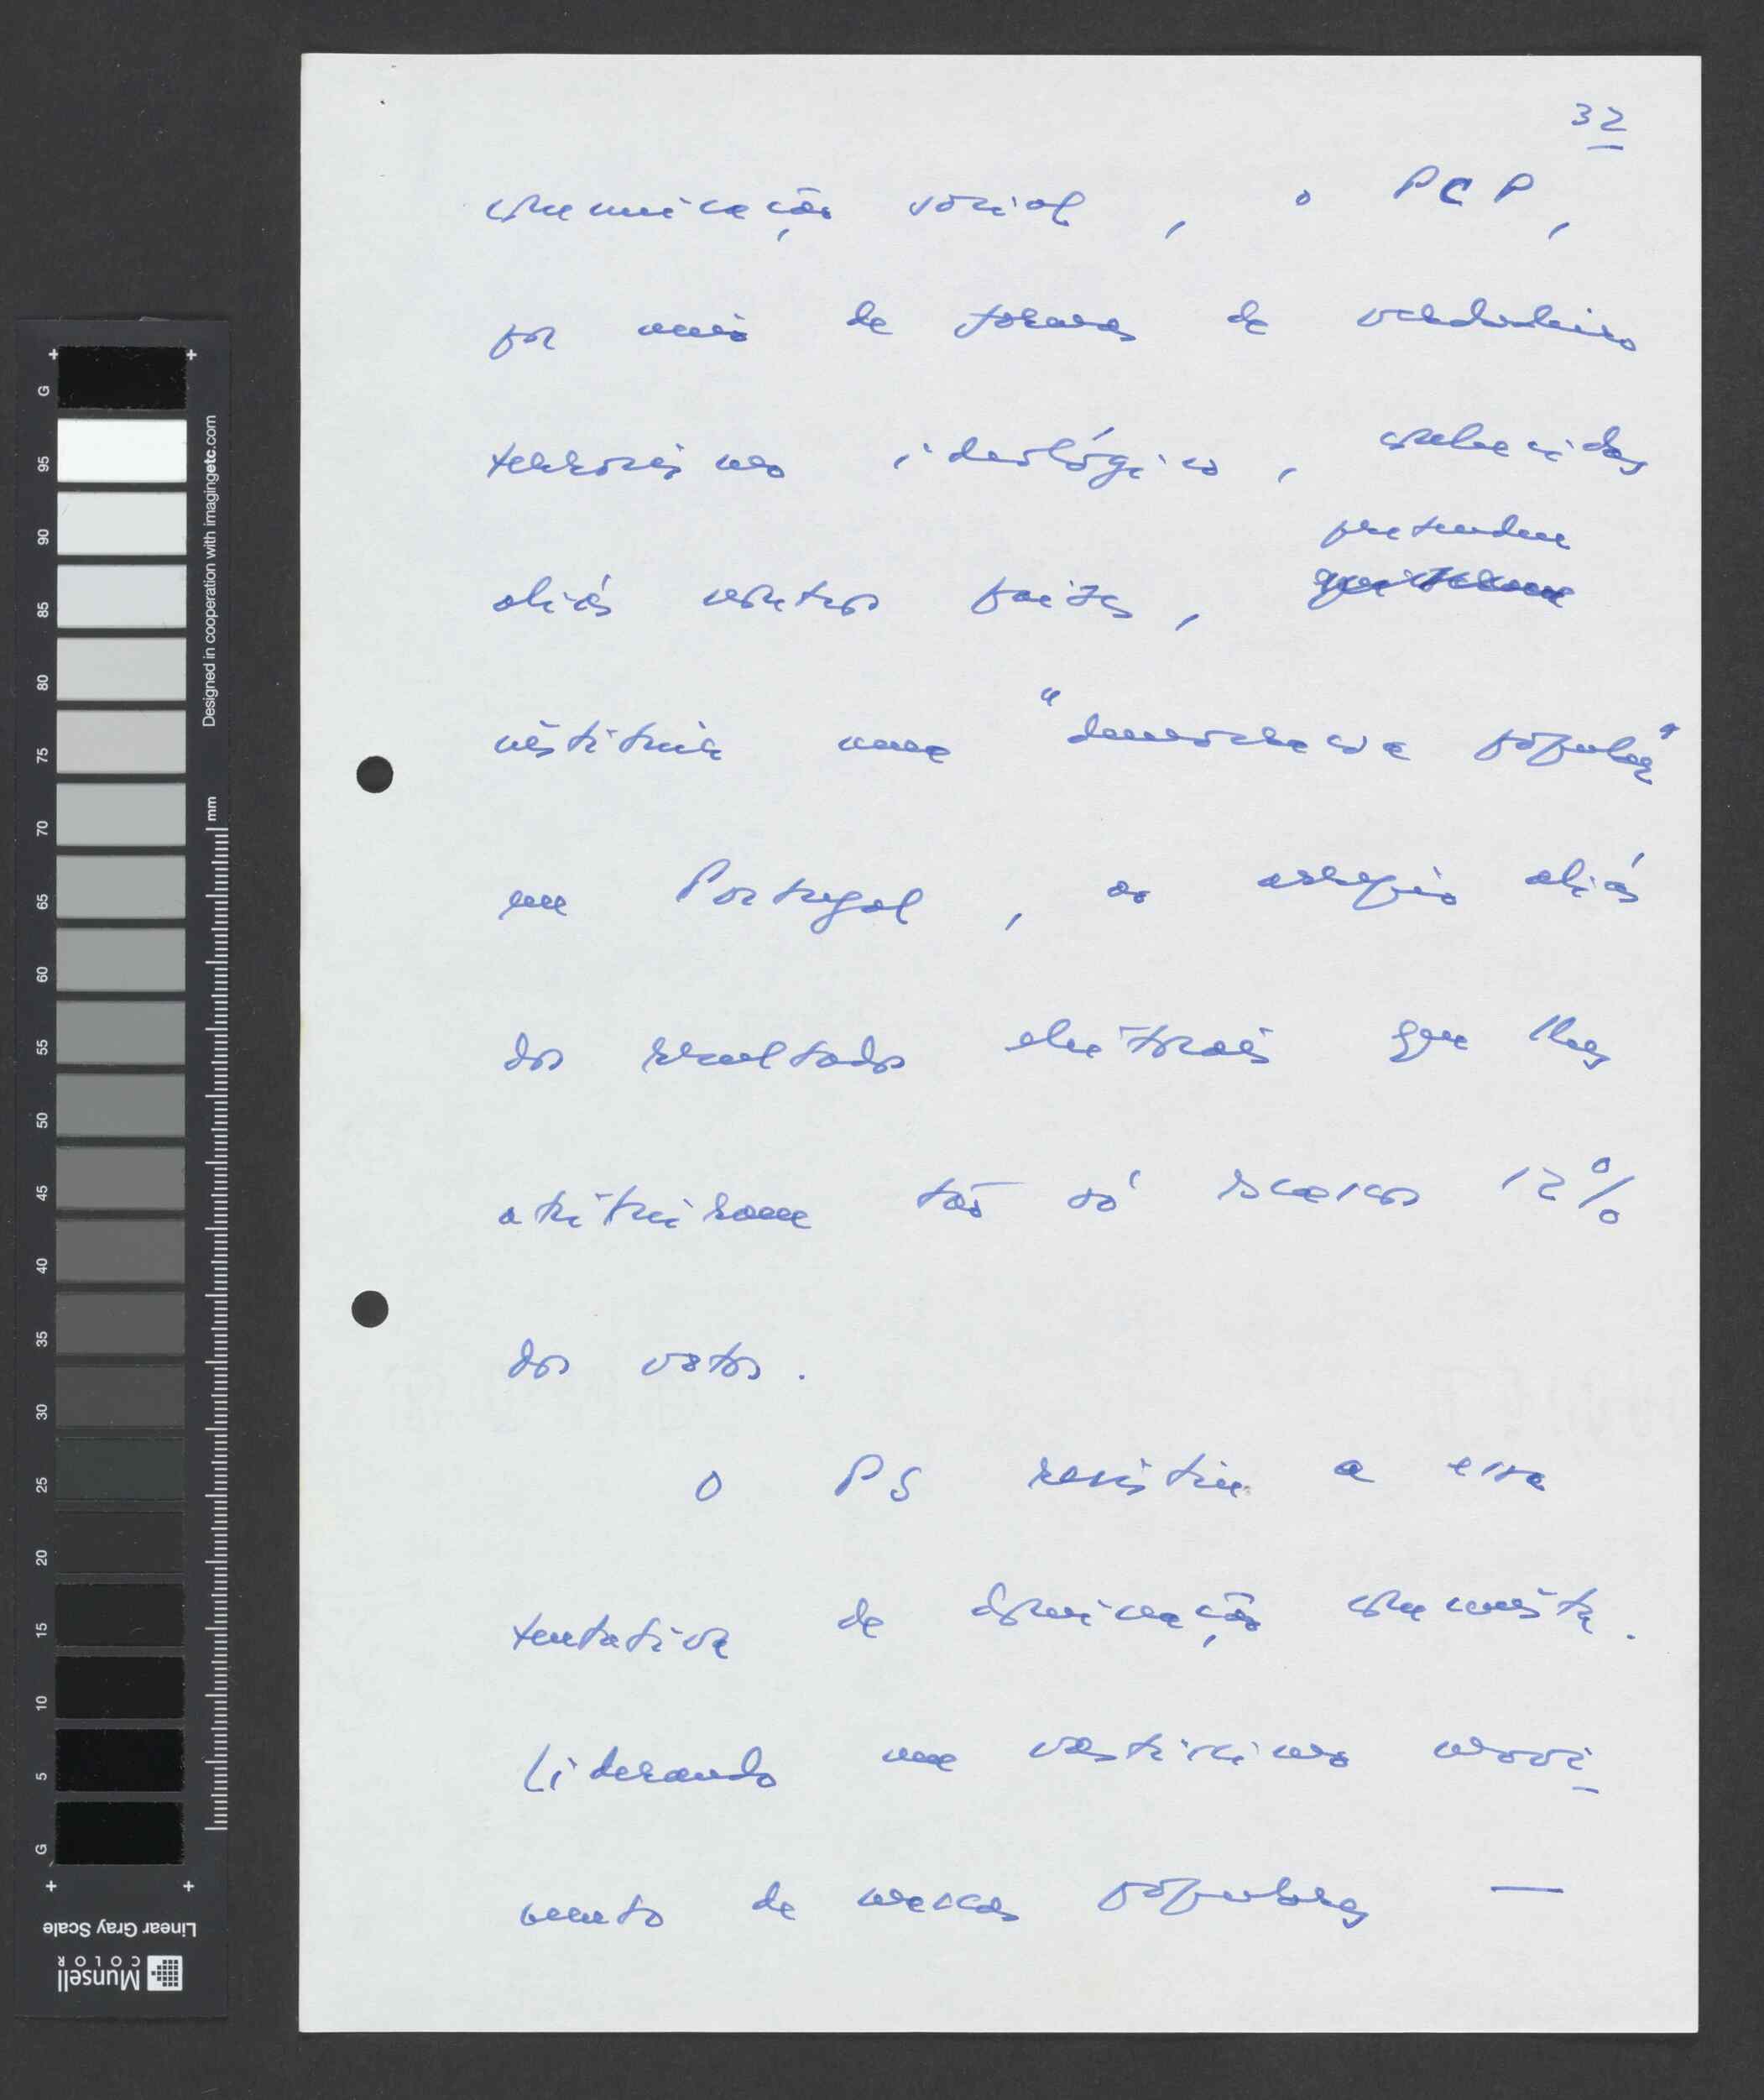 32
comunicação social, o PCP,
por meio de formas de verdadeiro
terrorismo ideológico, conhecidas
pretendeu
aliás noutros países,
instituir uma "democracia popular"
em Portugal, ao arrepio aliás
dos resultados eleitorais que lhes
atribuiram tão só escassos 12%
dos votos.
O PS resistiu a essa
tentativa de dominação comunista.
Liderando um vastíssimo movi-
mento de massas populares —
G
95
90
85
80
75
70
65
60
55
50
45
40
35
30
25
20
15
10
5
G
Designed in cooperation with imagingetc.com
mm
Linear Gray Scale
Munsell
COLOR